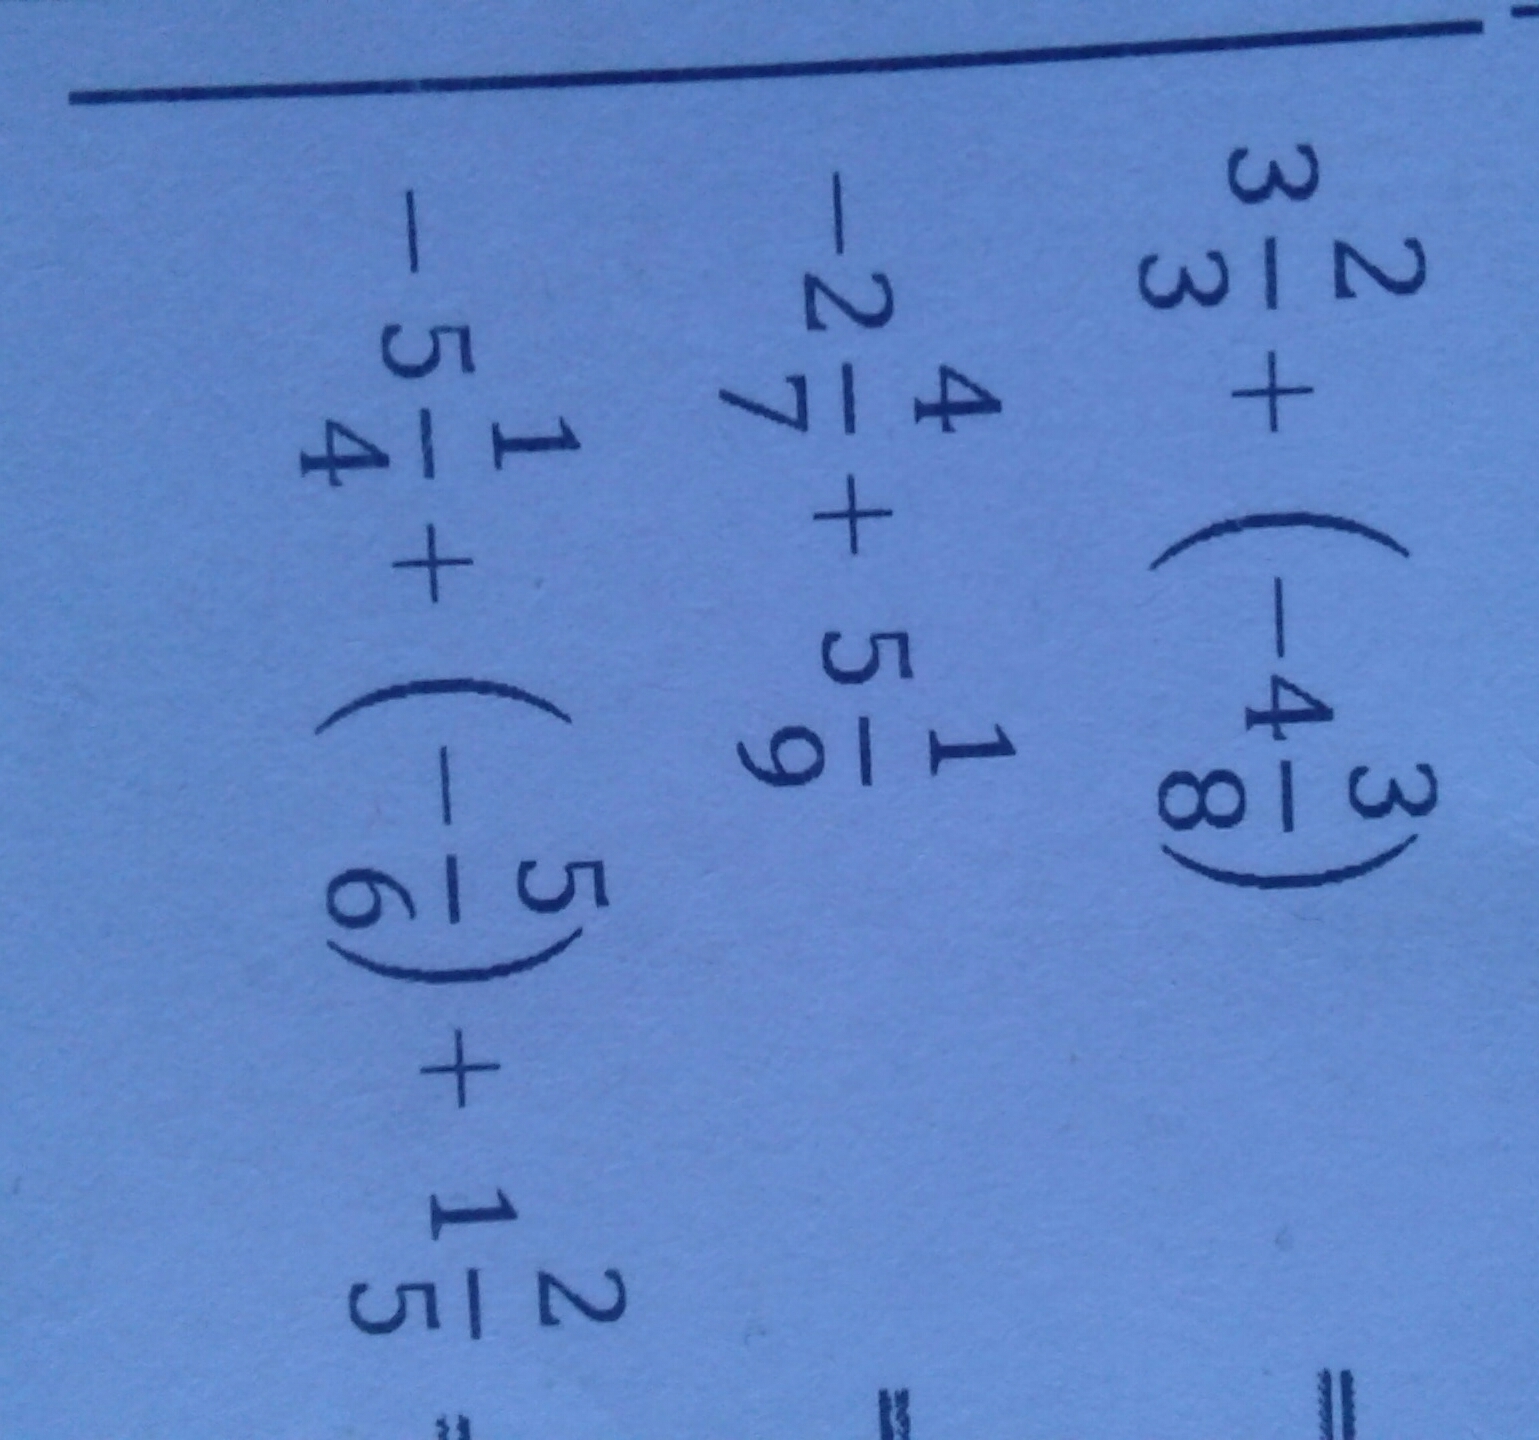 3 2/3 + (−4 3/8) =
−2 4/7 + 5 1/9 =
−5 1/4 + (−5/6) + 1 2/5 =